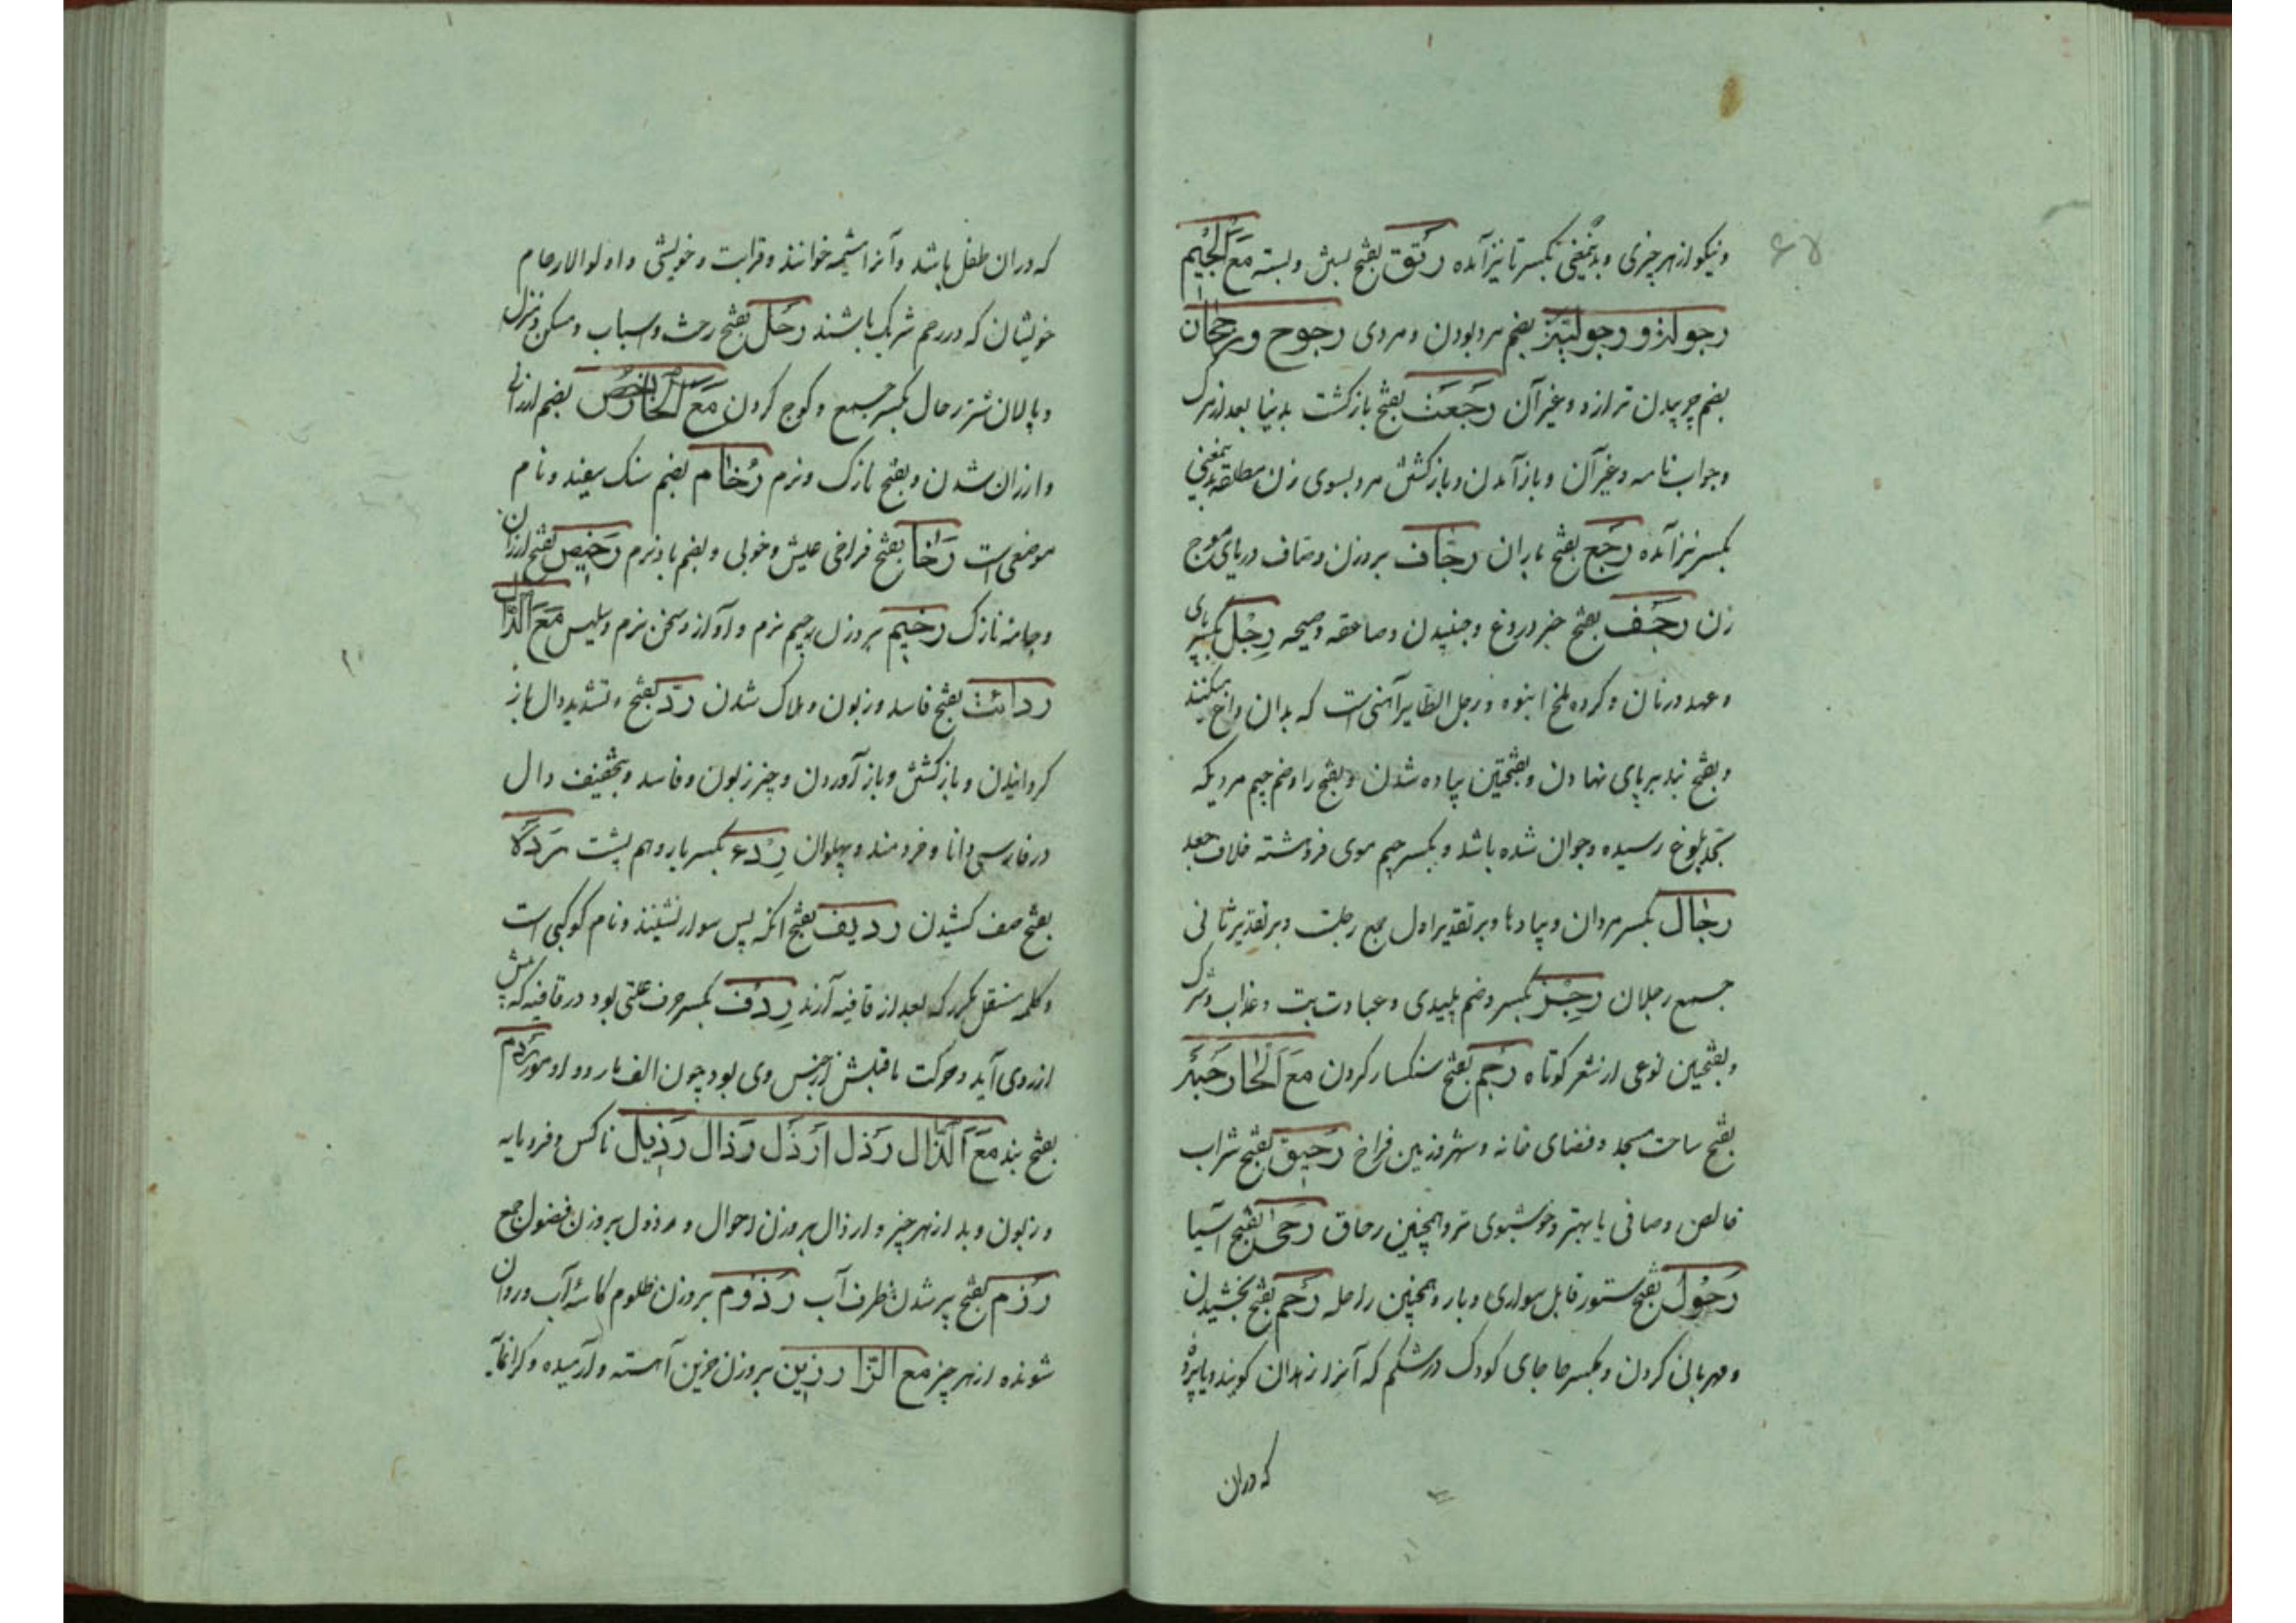 ونیکو از هر چیزی وبدینمعنی بکسر تا نیز آمده رتق بفتح بستن وبسته مع الجیم
۶۷
رجولة و رجولیة بضم مرد بودن ومردی رجوح ورجحان
بضم چربیدن ترازو وغیر آن رجعت بفتح بازگشت بدنیا بعد از مرک
وجواب نامه وغیر آن وباز آمدن وبازگشتن مرد بسوی زن مطلقه بدینمعنی
بکسر نیز آمده رجع بفتح باران رجاف بروزن وصاف دریای موج
زن رجف بفتح خبر دروغ وجنبیدن وصاعقه وصیحه رجل بکسر پای
وعهد وزنان وکروه ملخ انبوه ورجل الطایر آهنی است که بدان داغ میکنند
وبفتح بند بر پای نهادن وبفتحتین پیاده شدن وبفتح را وضم جیم مردیکه
بحد بلوغ رسیده وجوان شده باشد وبکسر جیم موی فروهشته خلاف جعد
رجال بکسر مردان وپیادها وبر تقدیر اول جمع رجلت وبر تقدیر ثانی
جمع رجلان رجز بکسر وضم پلیدی وعبادت بت وعذاب وشرک
وبفتحین نوعی از شعر کوتاه رجم بفتح سنکسار کردن مع الحا رحبة
بفتح ساحت مسجد وفضای خانه وشهر وزمین فراخ رحیق بفتح شراب
خالص وصافی یا بهتر وخوشبوی تر وهمچنین رحاق رحی بفتح آسیا
رحول بفتح ستور قابل سواری وبار وهمچنین راحله رحم بفتح بخشیدن
ومهربانی کردن وبکسر حا جای کودک در شکم که آنرا زهدان کویند ویا پرده
که دران
که دران طفل باشد وآنرا مشیمه خوانند وقرابت وخویشی واولوا الارحام
خویشان که در رحم شریک باشند رحل بفتح رخت واسباب ومسکن ومنزل
وپالان شتر رحال بکسر جمع وکوچ کردن مع الخا رخص بضم ارزانی
وارزان شدن وبفتح نازک ونرم رخام بضم سنک سفید ونام
موضعی است رخا بفتح فراخی عیش وخوبی وبضم باد نرم رخیص بفتح ارزان
وجامه نازک رخیم بروزن رحیم نرم وآواز وسخن نرم وسلیس مع الدال
ردائت بفتح فاسد وزبون وهلاک شدن رد بفتح وتشدید دال باز
کردانیدن وبازکشتن وباز آوردن وچیز زبون وفاسد وبتخفیف دال
در فارسی دانا وخردمند وپهلوان ردء بکسر یار وهم پشت رده
بفتح صف کشیدن ردیف بفتح انکه پس سوار نشیند ونام کوکبی است
وکلمه مستقل مکرر که بعد از قافیه آرند ردف بکسر حرف علتی بود در قافیه که پیش
از روی آید وحرکت ماقبلش از جنس وی بود چون الف یار وواو مور ردم
بفتح بند مع الذال رذل ارذل رذال رذیل ناکس وفرومایه
وزبون وبد از هر چیز وارذال بروزن احوال و رذول بروزن فضول جمع
رذم بفتح پر شدن ظرف آب رذوم بروزن ظلوم کاسه آب وروان
شونده از هر چیز مع الزا رزین بروزن حزین آهسته وآرمیده وکرانمایه